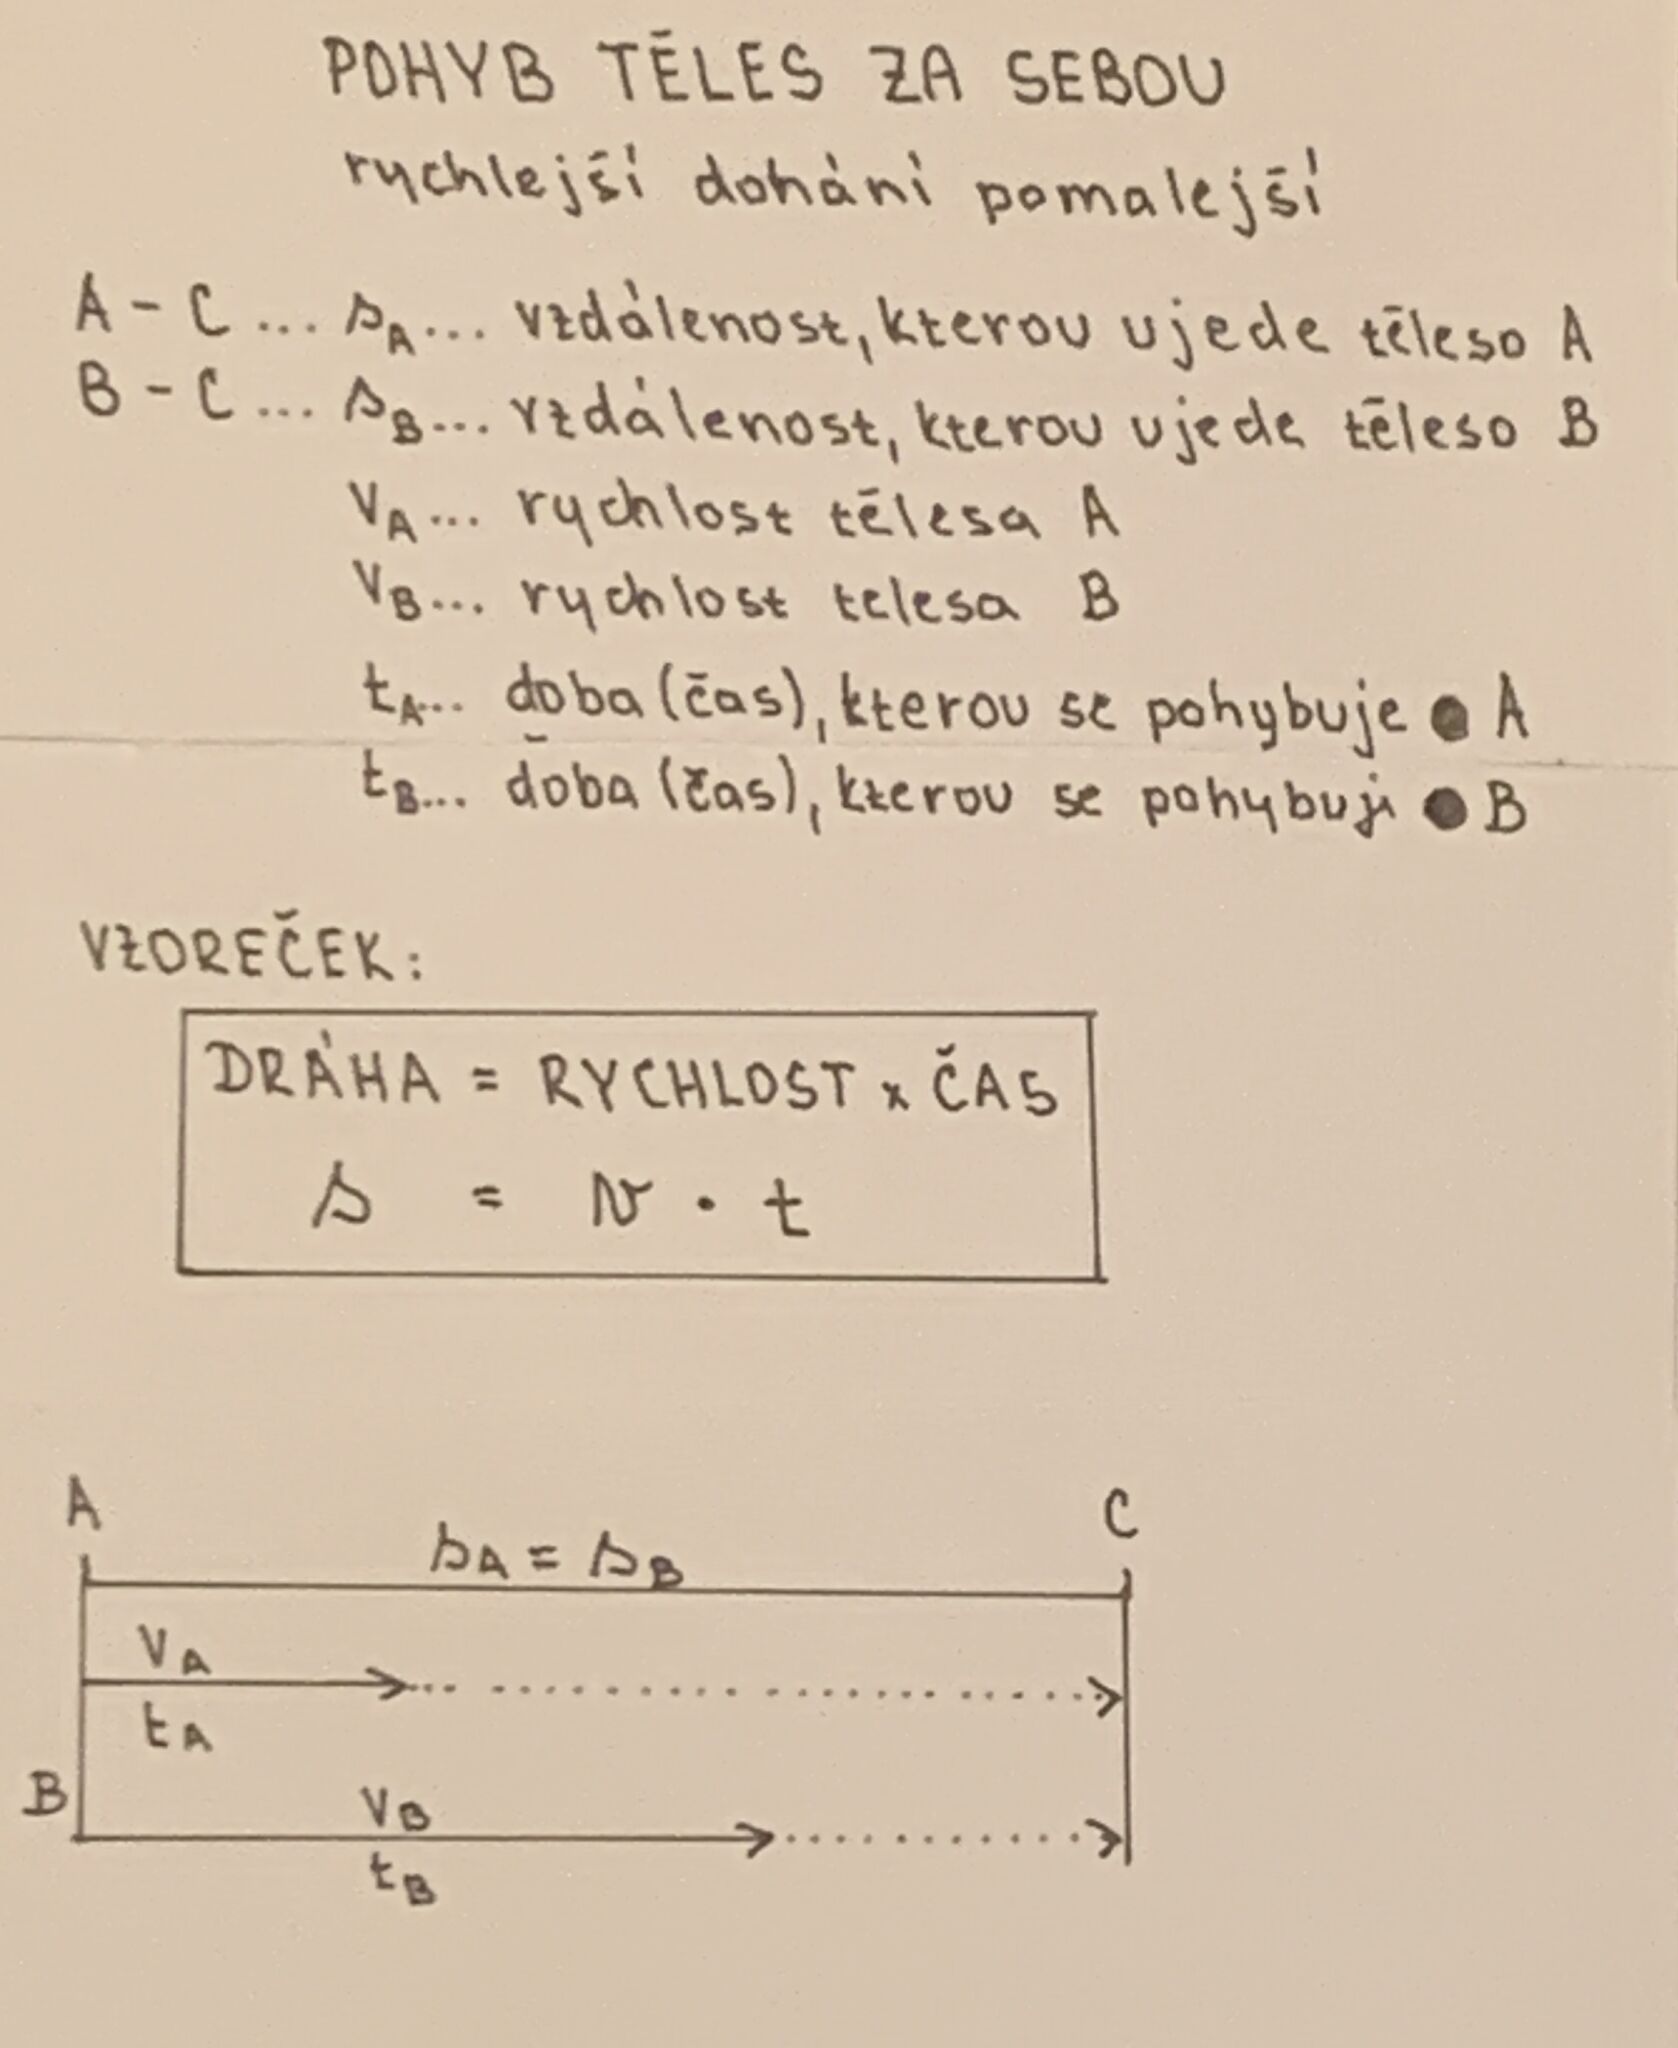 POHYB TĚLES ZA SEBOU
rychlejší dohání pomalejší
A - C ... sA ... vzdálenost, kterou ujede těleso A
B - C ... sB ... vzdálenost, kterou ujede těleso B
VA ... rychlost tělesa A
VB ... rychlost telesa B
tA ... doba (čas), kterou se pohybuje ● A
tB ... doba (čas), kterou se pohybuji ● B
VZOREČEK:
DRÁHA = RYCHLOST x ČAS
s = v · t
A C
sA = sB
VA
tA
B
VB
tB